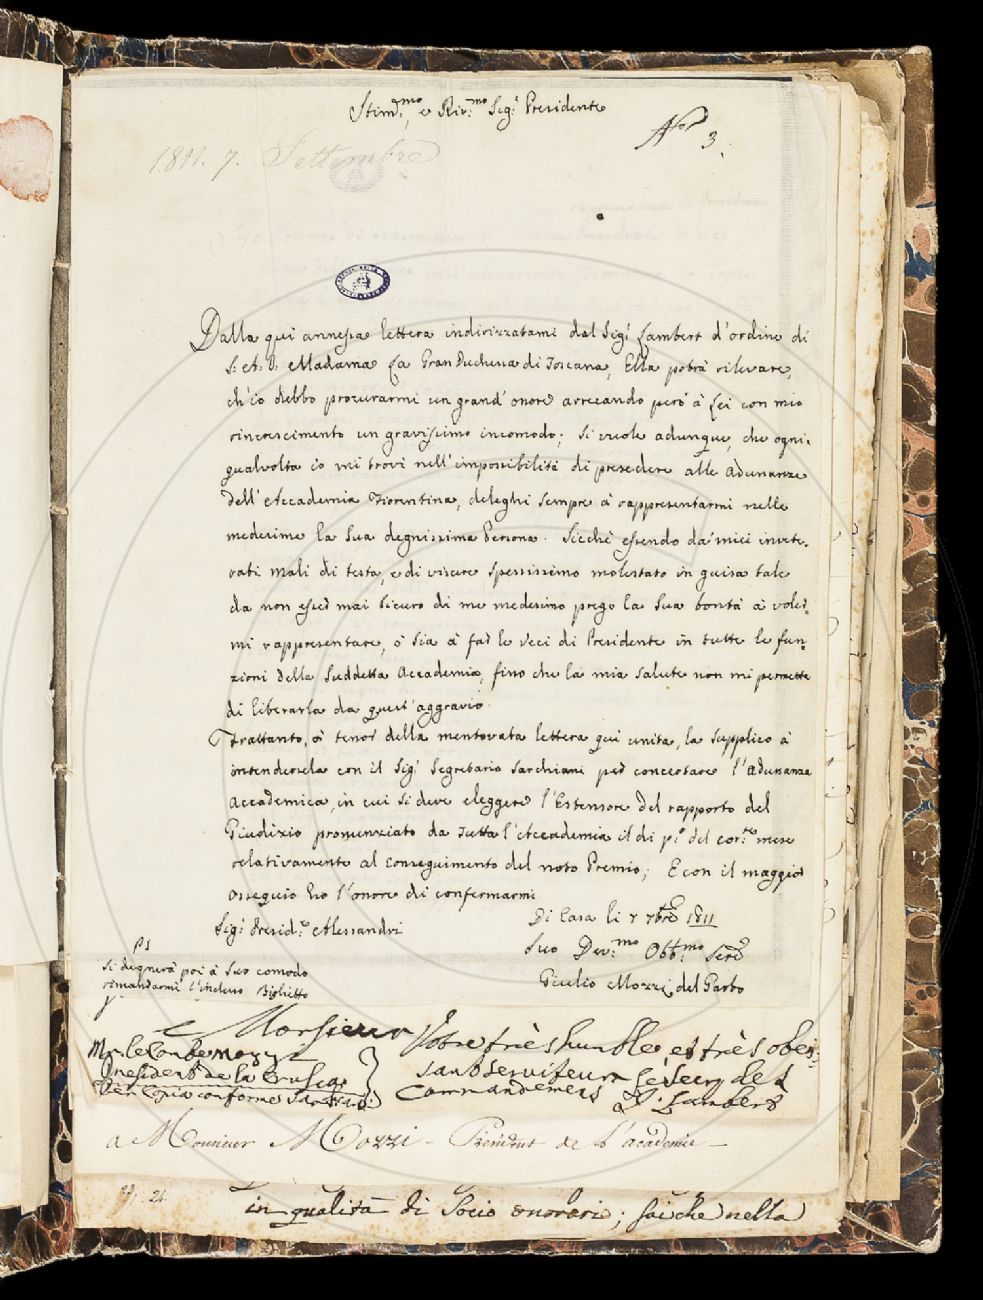 Stim.mo e Riv.mo Sig.r Presidente
N.o 3.
1811. 7. Settembre
Dalla qui annessa lettera indirizzatami dal Sig.r Lambert d'ordine di
S: A: I: Madama La GranDuchessa di Toscana, Ella potrà rilevare,
ch'io debbo procurarmi un grand'onore arrecando però à Lei con mio
rincrescimento un gravissimo incomodo; si vuole adunque, che ogni-
qualvolta io mi trovi nell'impossibilità di presedere alle adunanze
dell'Accademia Fiorentina, deleghi sempre à rappresentarmi nelle
medesime la sua degnissima Persona. Sicchè essendo da' miei invete-
rati mali di testa, e di viscere spessissimo molestato in guisa tale
da non esser mai sicuro di me medesimo prego la sua bontà à voler-
mi rappresentare, ò sia à far le veci di Presidente in tutte le fun-
zioni della suddetta Accademia, fino che la mia salute non mi permette
di liberarla da quest'aggravio.
Frattanto, à tenor della mentovata lettera qui unita, la supplico à
intendersela con il Sig.r Segretario Sarchiani per concertare l'adunanza
accademica, in cui si deve eleggere l'Estensore del rapporto del
Giudizio pronunziato da tutta l'Accademia il dì p.o del cor.te mese
relativamente al conseguimento del noto Premio; E con il maggior
ossequio ho l'onore di confermarmi
Sig.r Presid.e Alessandri
Di Casa li 7 7bre 1811
Suo Dev.mo Obb.mo Serv.e
Giulio Mozzi del Garbo
PS
Si degnerà poi à suo comodo
rimandarmi l'incluso Biglietto
Monsieur
Votre très humble et très obeis-
Mr. le Conte Mozzi
sant Serviteur
President de la Crusca
Commandemens
Per copia conforme
L. Lambert
a Monsieur Mozzi - President de l'academie -
24
in qualità di Socio onorario; sa che nella